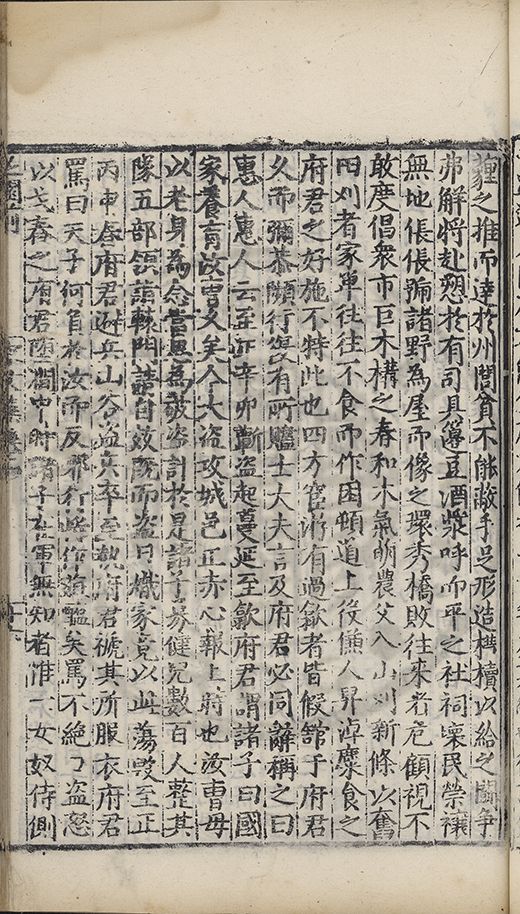 糧之推而達於州閭貧不能斂手足形造槥櫝以給之鬭爭
弗解將赴愬於有司具簿豆酒漿呼而平之社祠壞民禜禳
無地倀倀徧諸野為屋而像之環秀橋敗往來者危顧視不
敢度倡衆市巨木構之春和木氣萌農父入山刈新條以奮
田刈者家單往往不食而作困頓道上役傔人昇淖糜食之
府君之好施不特此也四方宦游有過歙者皆假舘于府君
久而彌恭瀕行必有所贐士大夫言及府君必同辭稱之曰
惠人惠人云至正辛卯蘄盜起蔓延至歙府君謂諸子曰國
家養育汝曹久矣今大盜攻城邑正赤心報上時也汝曹毋
以老身為念當思為破盜計於是諸子募健兒數百人整其
隊五部領詣轅門請自效旣而盜日熾家竟以此蕩毀至正
丙申春府君避兵山谷盜兵卒至執府君褫其所服衣府君
罵曰天子何負於汝而反邪行將作葅醢矣罵不絕口盜怒
以戈舂之府君墮澗中時諸子在軍無知者惟一女奴侍側